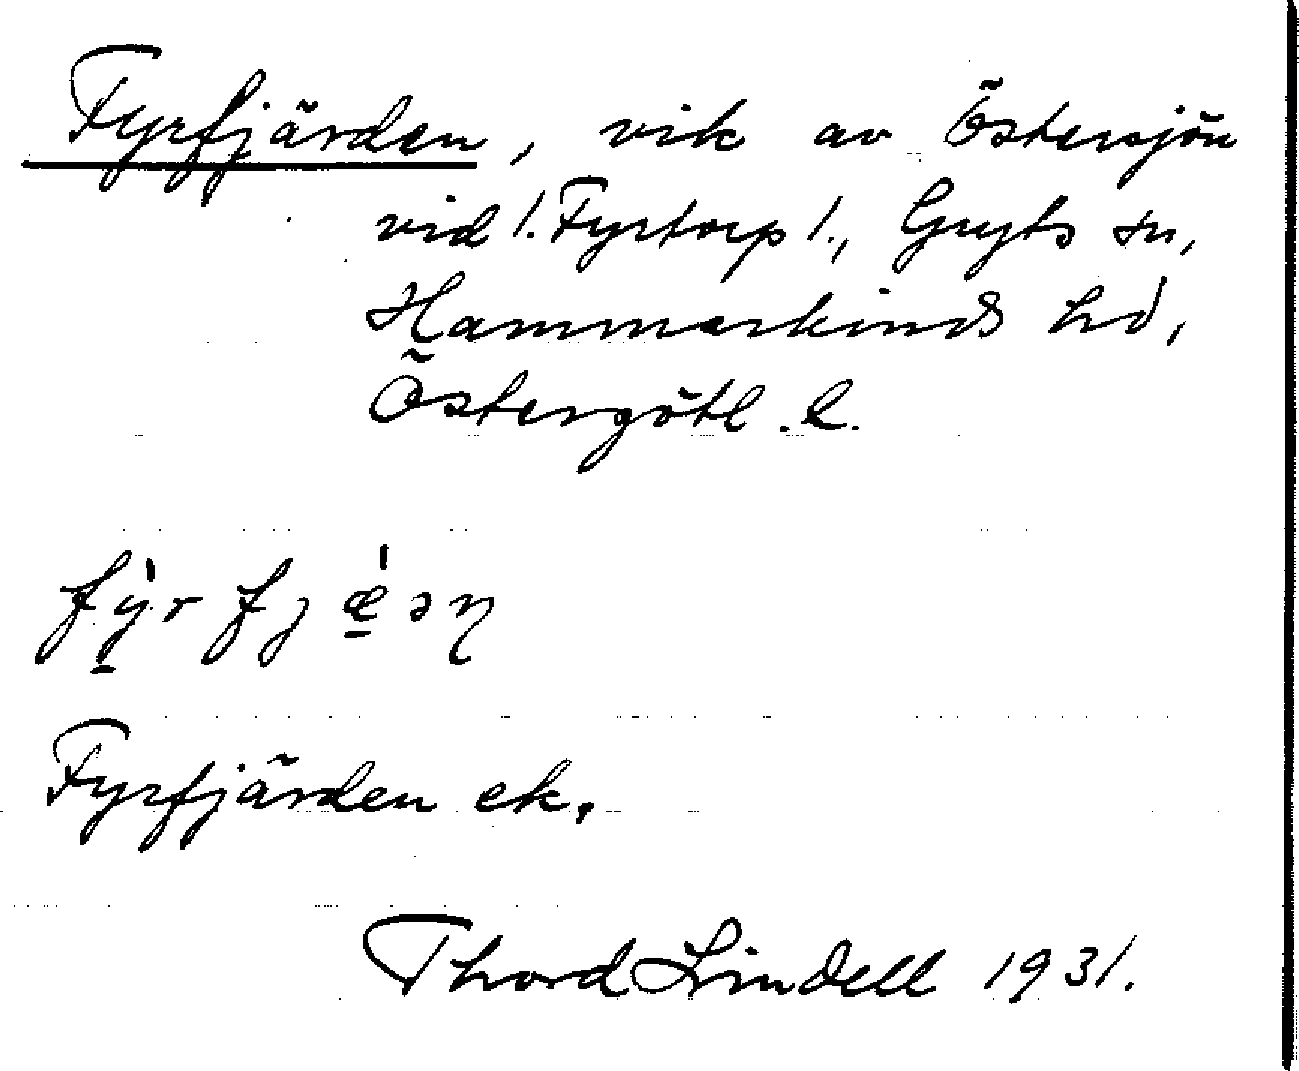 Fyrfjärden, vik av Östersjön
vid 1. Fyrtorp 1., Gryts sn,
Hammarkinds hd,
Östergötl. l.
fỳ̱r fjæ̱̍əɳ
Fyrfjärden ek.
Thord Lindell 1931.